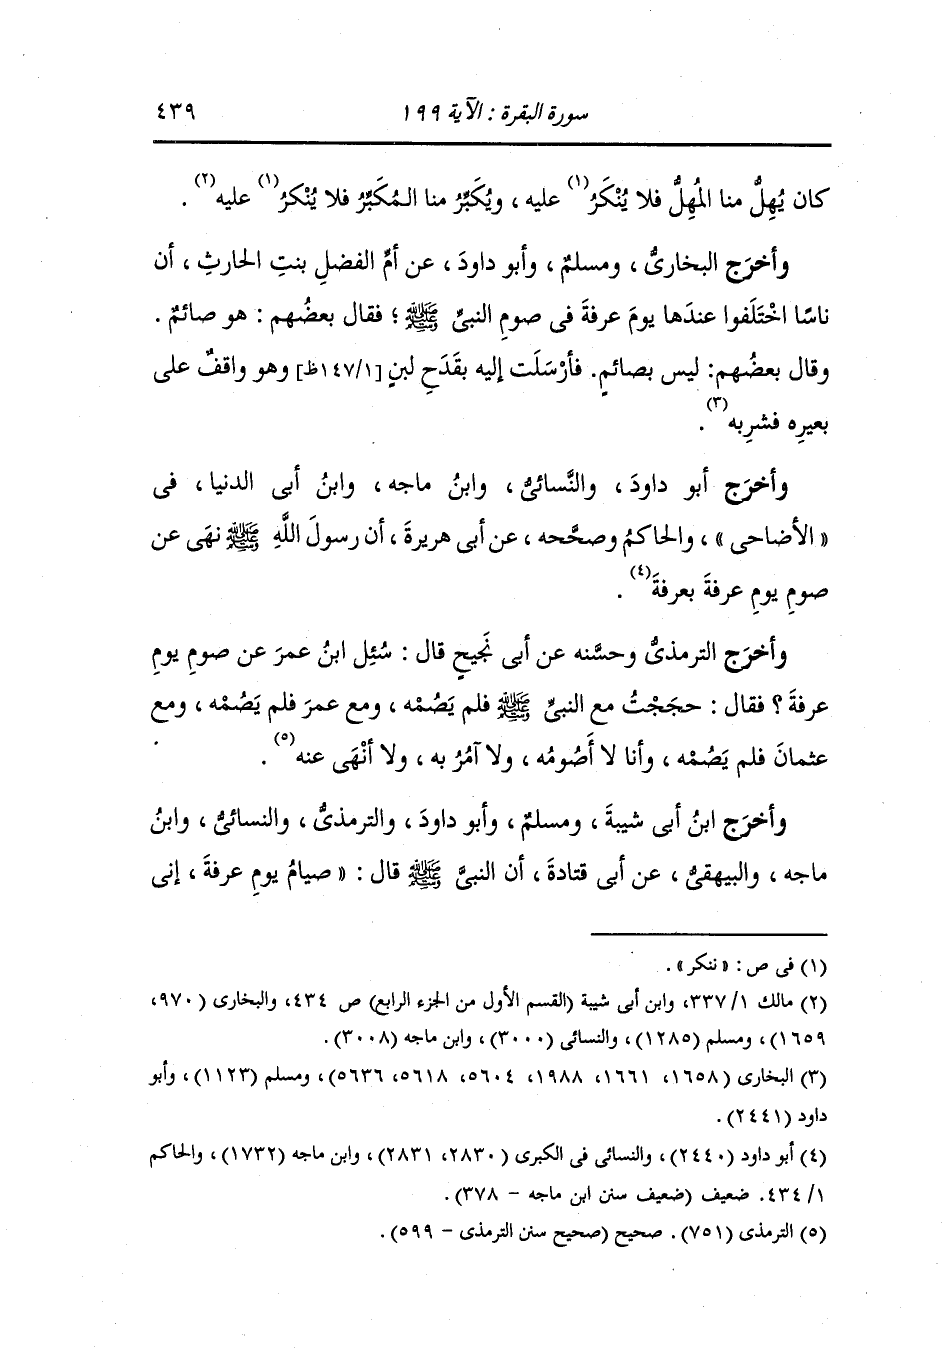 سورة البقرة : الآية ١٩٩ ٤٣٩
كان يُهِلُّ منا المُهِلُّ فلا يُنْكَرُ(١) عليه ، ويُكَبِّرُ منا المُكَبِّرُ فلا يُنْكرُ(١) عليه(٢) .
وأخرَج البخارىُّ ، ومسلمٌ ، وأبو داودَ ، عن أمِّ الفضلِ بنتِ الحارثِ ، أن
ناسًا اخْتَلَفوا عندَها يومَ عرفةَ فى صومِ النبىِّ ﷺ ؛ فقال بعضُهم : هو صائمٌ .
وقال بعضُهم: ليس بصائمٍ. فأرْسَلَت إليه بقَدَحِ لبنٍ [١٤٧/١ظ] وهو واقفٌ على
بعيرِه فشرِبه(٣) .
وأخرَج أبو داودَ ، والنَّسائىُّ ، وابنُ ماجه ، وابنُ أبى الدنيا ، فى
« الأضاحى » ، والحاكمُ وصحَّحه ، عن أبى هريرةَ ، أن رسولَ اللَّهِ ﷺ نهَى عن
صومِ يومِ عرفةَ بعرفةَ(٤) .
وأخرَج الترمذىُّ وحسَّنه عن أبى نَجيحٍ قال : سُئِل ابنُ عمرَ عن صومِ يومِ
عرفةَ ؟ فقال : حجَجْتُ مع النبىِّ ﷺ فلم يَصُمْه ، ومع عمرَ فلم يَصُمْه ، ومع
عثمانَ فلم يَصُمْه ، وأنا لا أَصُومُه ، ولا آمُرُ به ، ولا أنْهَى عنه(٥) .
وأخرَج ابنُ أبى شيبةَ ، ومسلمٌ ، وأبو داودَ ، والترمذىُّ ، والنسائىُّ ، وابنُ
ماجه ، والبيهقىُّ ، عن أبى قتادةَ ، أن النبىَّ ﷺ قال : « صيامُ يومِ عرفةَ ، إنى
(١) فى ص : « ننكر » .
(٢) مالك ١/ ٣٣٧، وابن أبى شيبة (القسم الأول من الجزء الرابع) ص ٤٣٤، والبخارى (٩٧٠،
١٦٥٩)، ومسلم (١٢٨٥)، والنسائى (٣٠٠٠)، وابن ماجه (٣٠٠٨).
(٣) البخارى (١٦٥٨، ١٦٦١، ١٩٨٨، ٥٦٠٤، ٥٦١٨، ٥٦٣٦)، ومسلم (١١٢٣)، وأبو
داود (٢٤٤١).
(٤) أبو داود (٢٤٤٠)، والنسائى فى الكبرى (٢٨٣٠، ٢٨٣١)، وابن ماجه (١٧٣٢)، والحاكم
١/ ٤٣٤. ضعيف (ضعيف سنن ابن ماجه - ٣٧٨).
(٥) الترمذى (٧٥١). صحيح (صحيح سنن الترمذى - ٥٩٩).